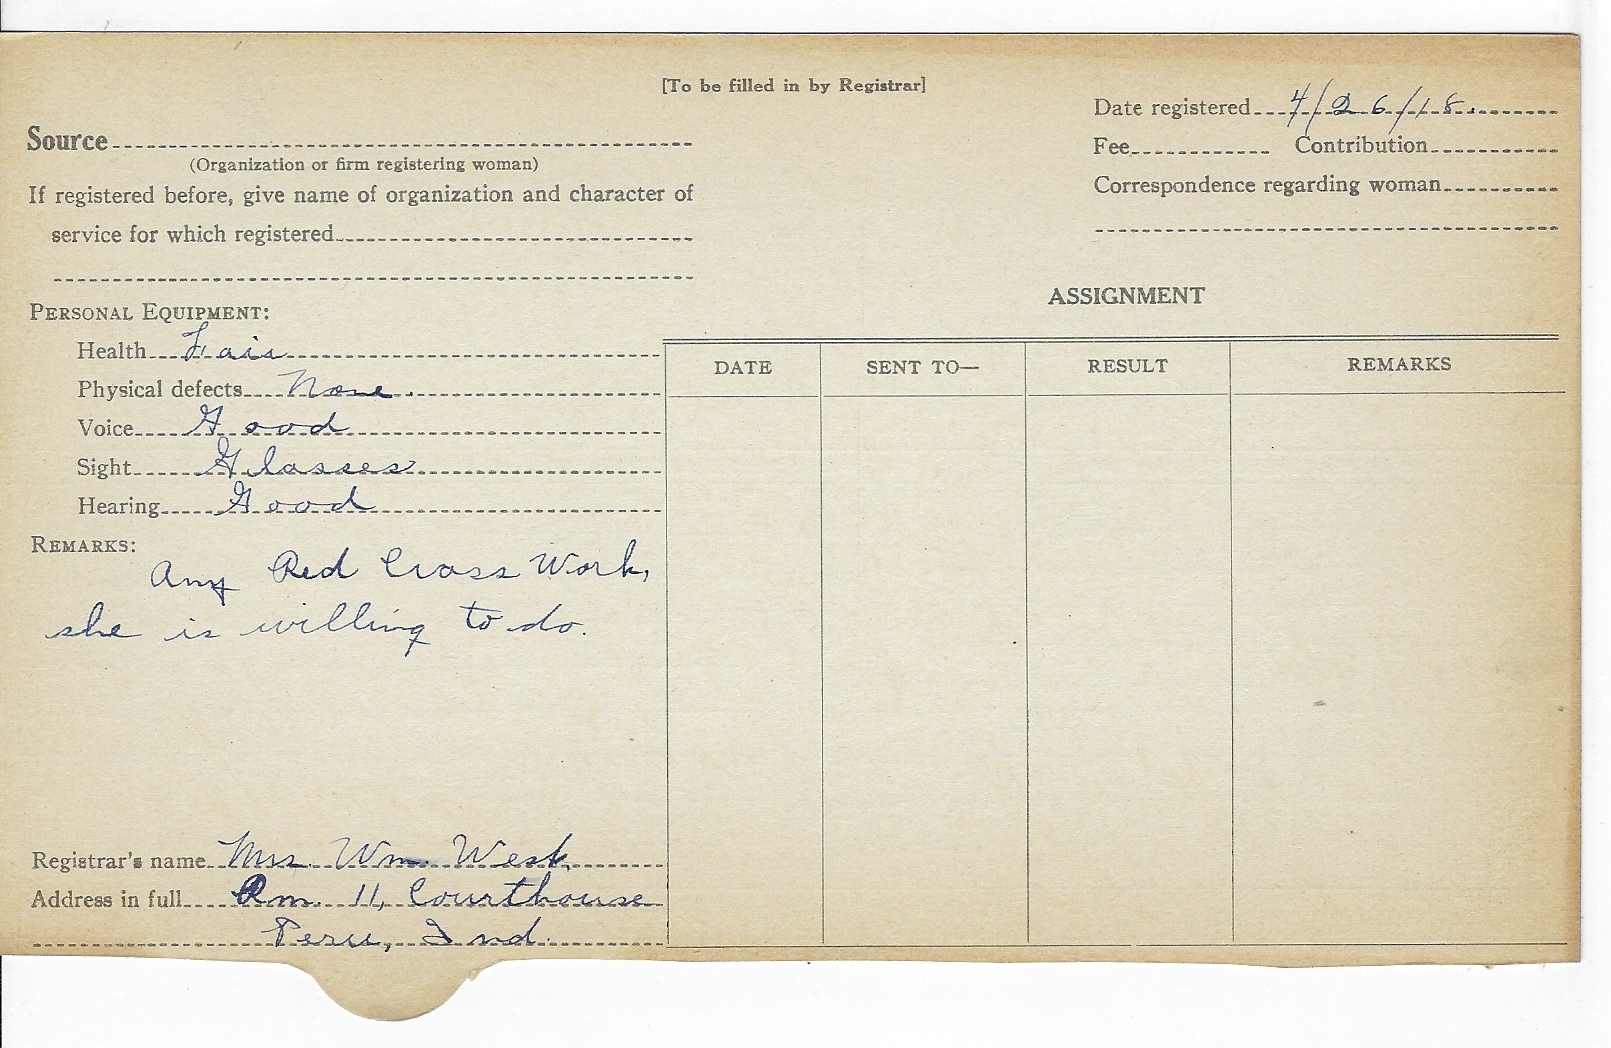 [To be filled in by Registrar]
Date registered 4/26/18.
Source
(Organization or firm registering woman)
Fee Contribution
If registered before, give name of organization and character of
service for which registered
Correspondence regarding woman
PERSONAL EQUIPMENT:
Health Fair
Physical defects None.
Voice Good
Sight Glasses
Hearing Good
REMARKS:
Any Red Cross Work,
she is willing to do.
Registrar's name Mrs. Wm. West.
Address in full Rm. 11, Courthouse
Peru, Ind.
ASSIGNMENT
DATE SENT TO— RESULT REMARKS